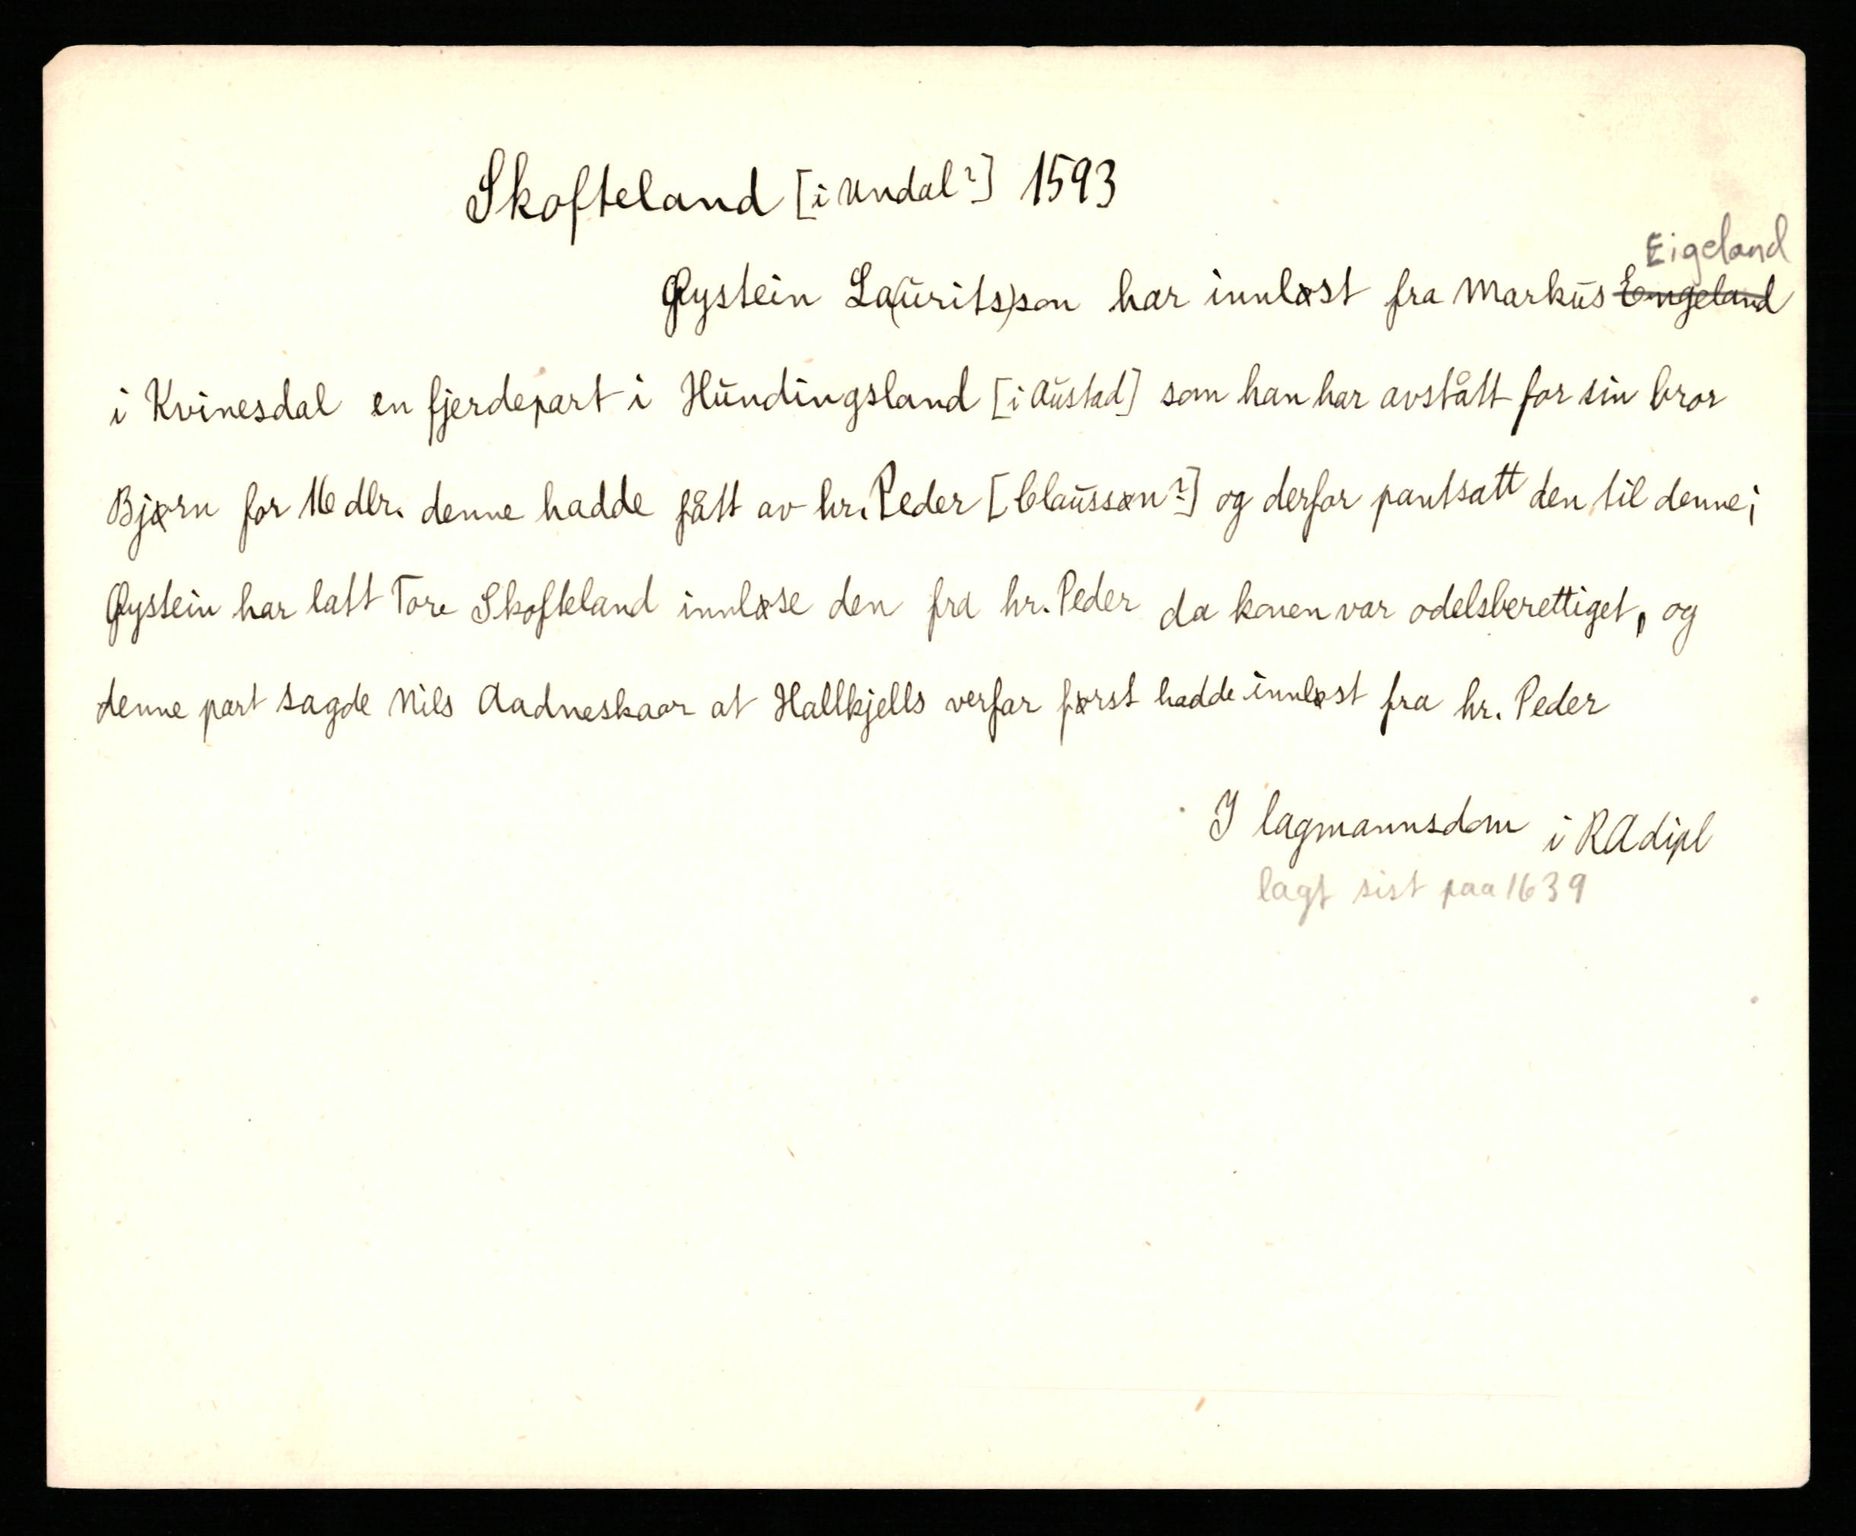 Skofteland [i Undal?] 1593
Eigeland
Øystein La(urits)son har innløst fra Markus Engeland
i Kvinesdal en fjerdepart i Hundingsland [i Austad] som han har avstått for sin bror
Bjørn for 16 dlr. denne hadde fått av hr. Peder [Claussøn?] og derfor pantsatt den til denne;
Øystein har latt Tore Skofteland innløse den fra hr. Peder da konen var odelsberettiget, og
denne part sagde Nils Aadneskaar at Hallkjells verfar først hadde innløst fra hr. Peder
I lagmannsdom i RA dipl
lagt sist paa 1639